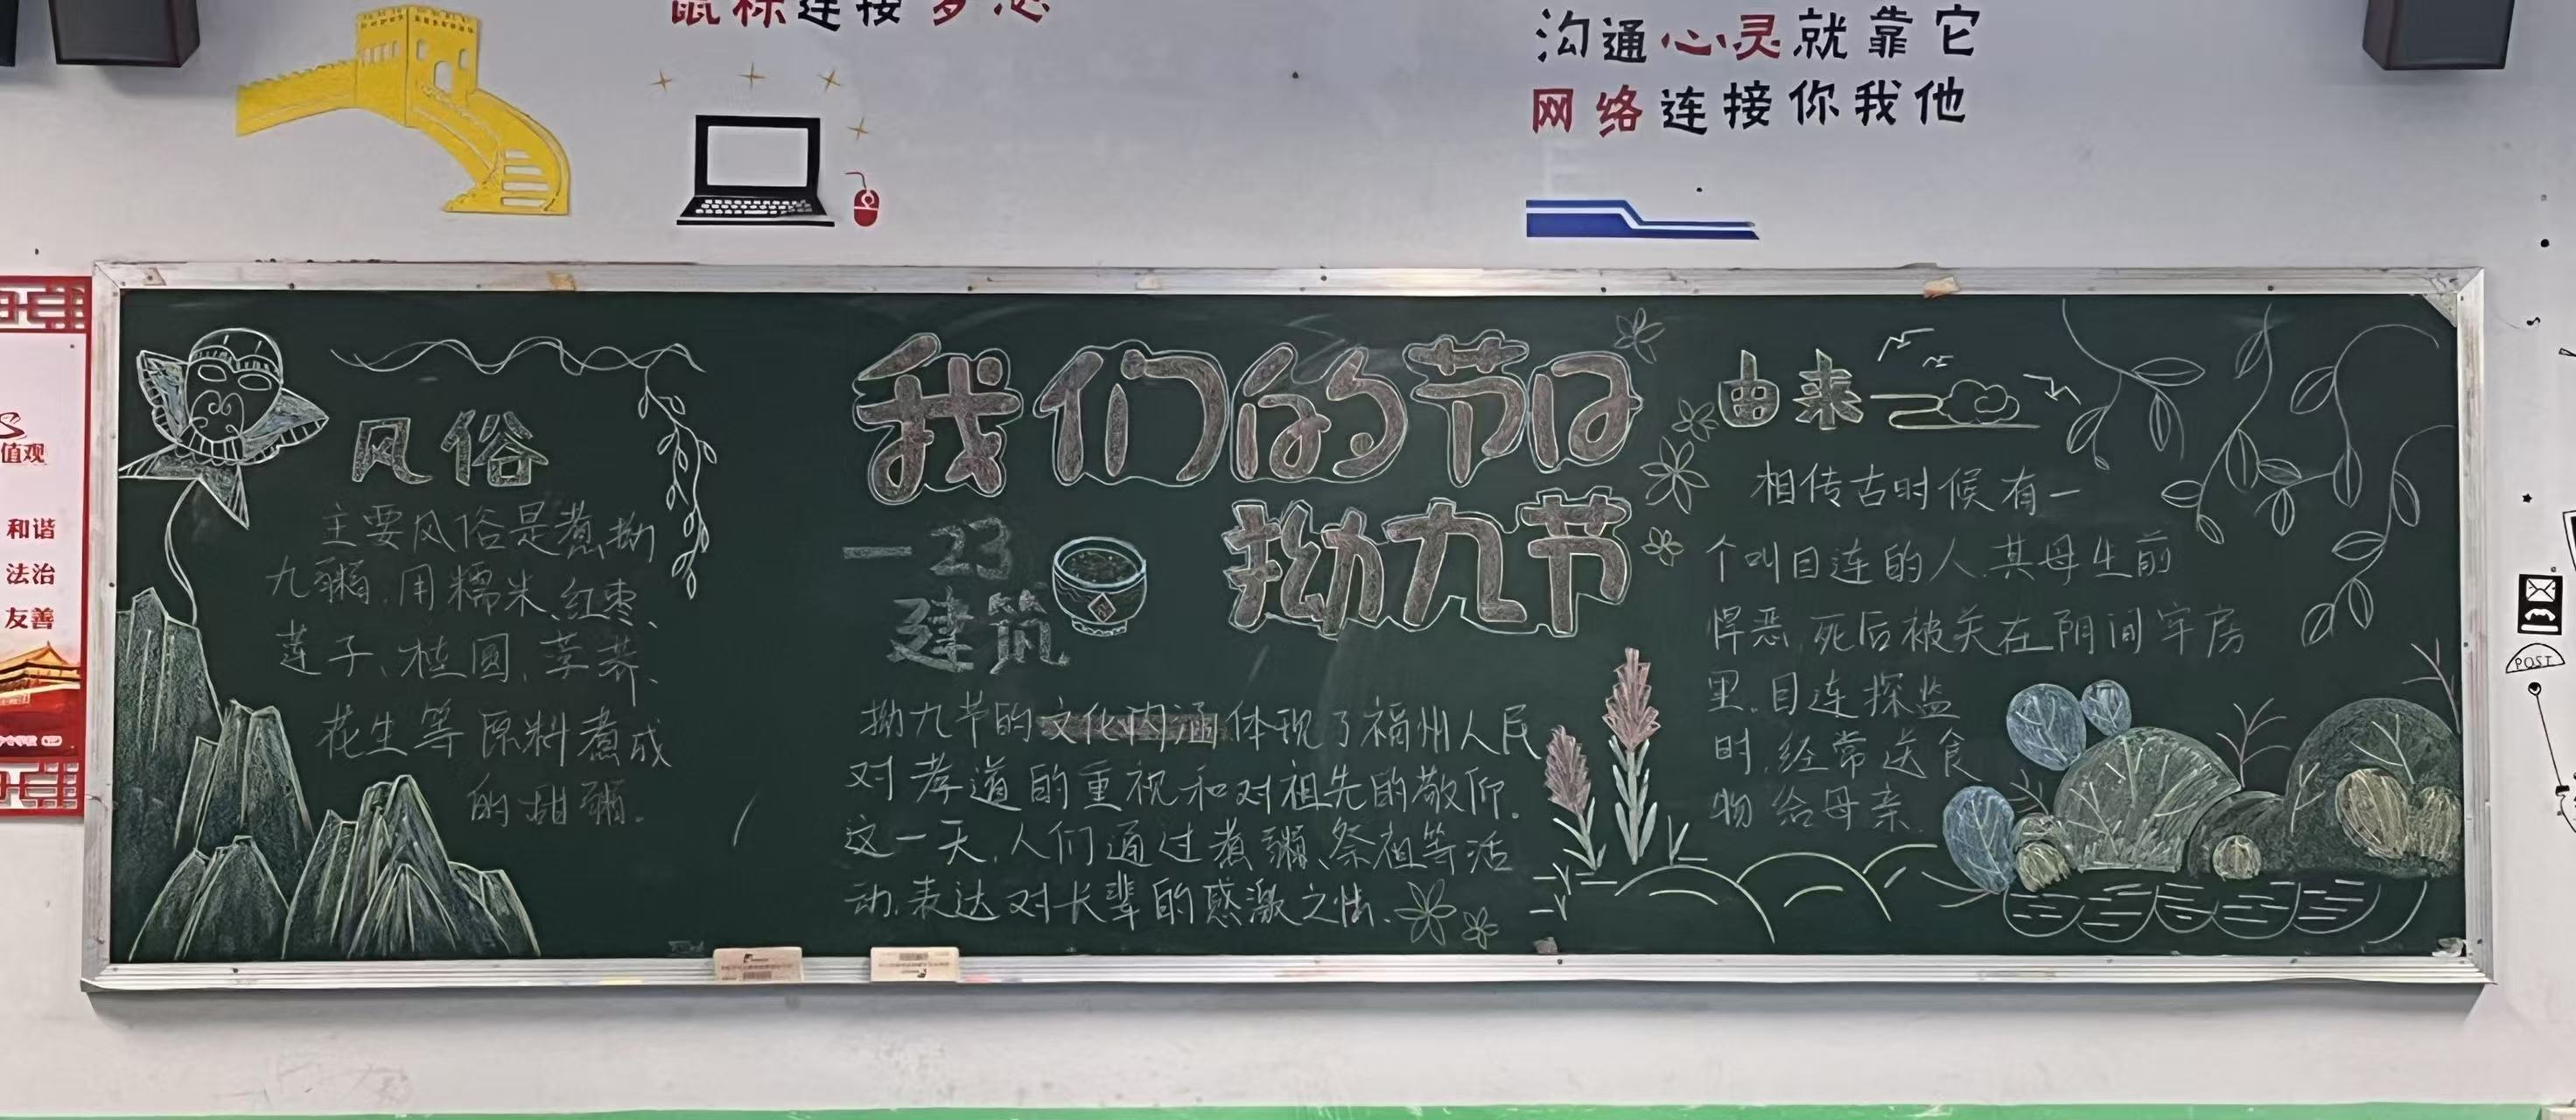 鼠标连接梦想
沟通心灵就靠它
网络连接你我他
值观
和谐
法治
友善
风俗
主要风俗是煮拗
九粥.用糯米、红枣、
莲子、桂圆、荸荠、
花生等原料煮成
的甜粥.
我们的节日
拗九节
—23
建筑
拗九节的文化内涵体现了福州人民
对孝道的重视和对祖先的敬仰.
这一天.人们通过煮粥、祭祖等活
动.表达对长辈的感激之情.
由来
相传古时候有一
个叫目连的人.其母生前
悍恶.死后被关在阴间牢房
里.目连探监
时.经常送食
物给母亲.
POST